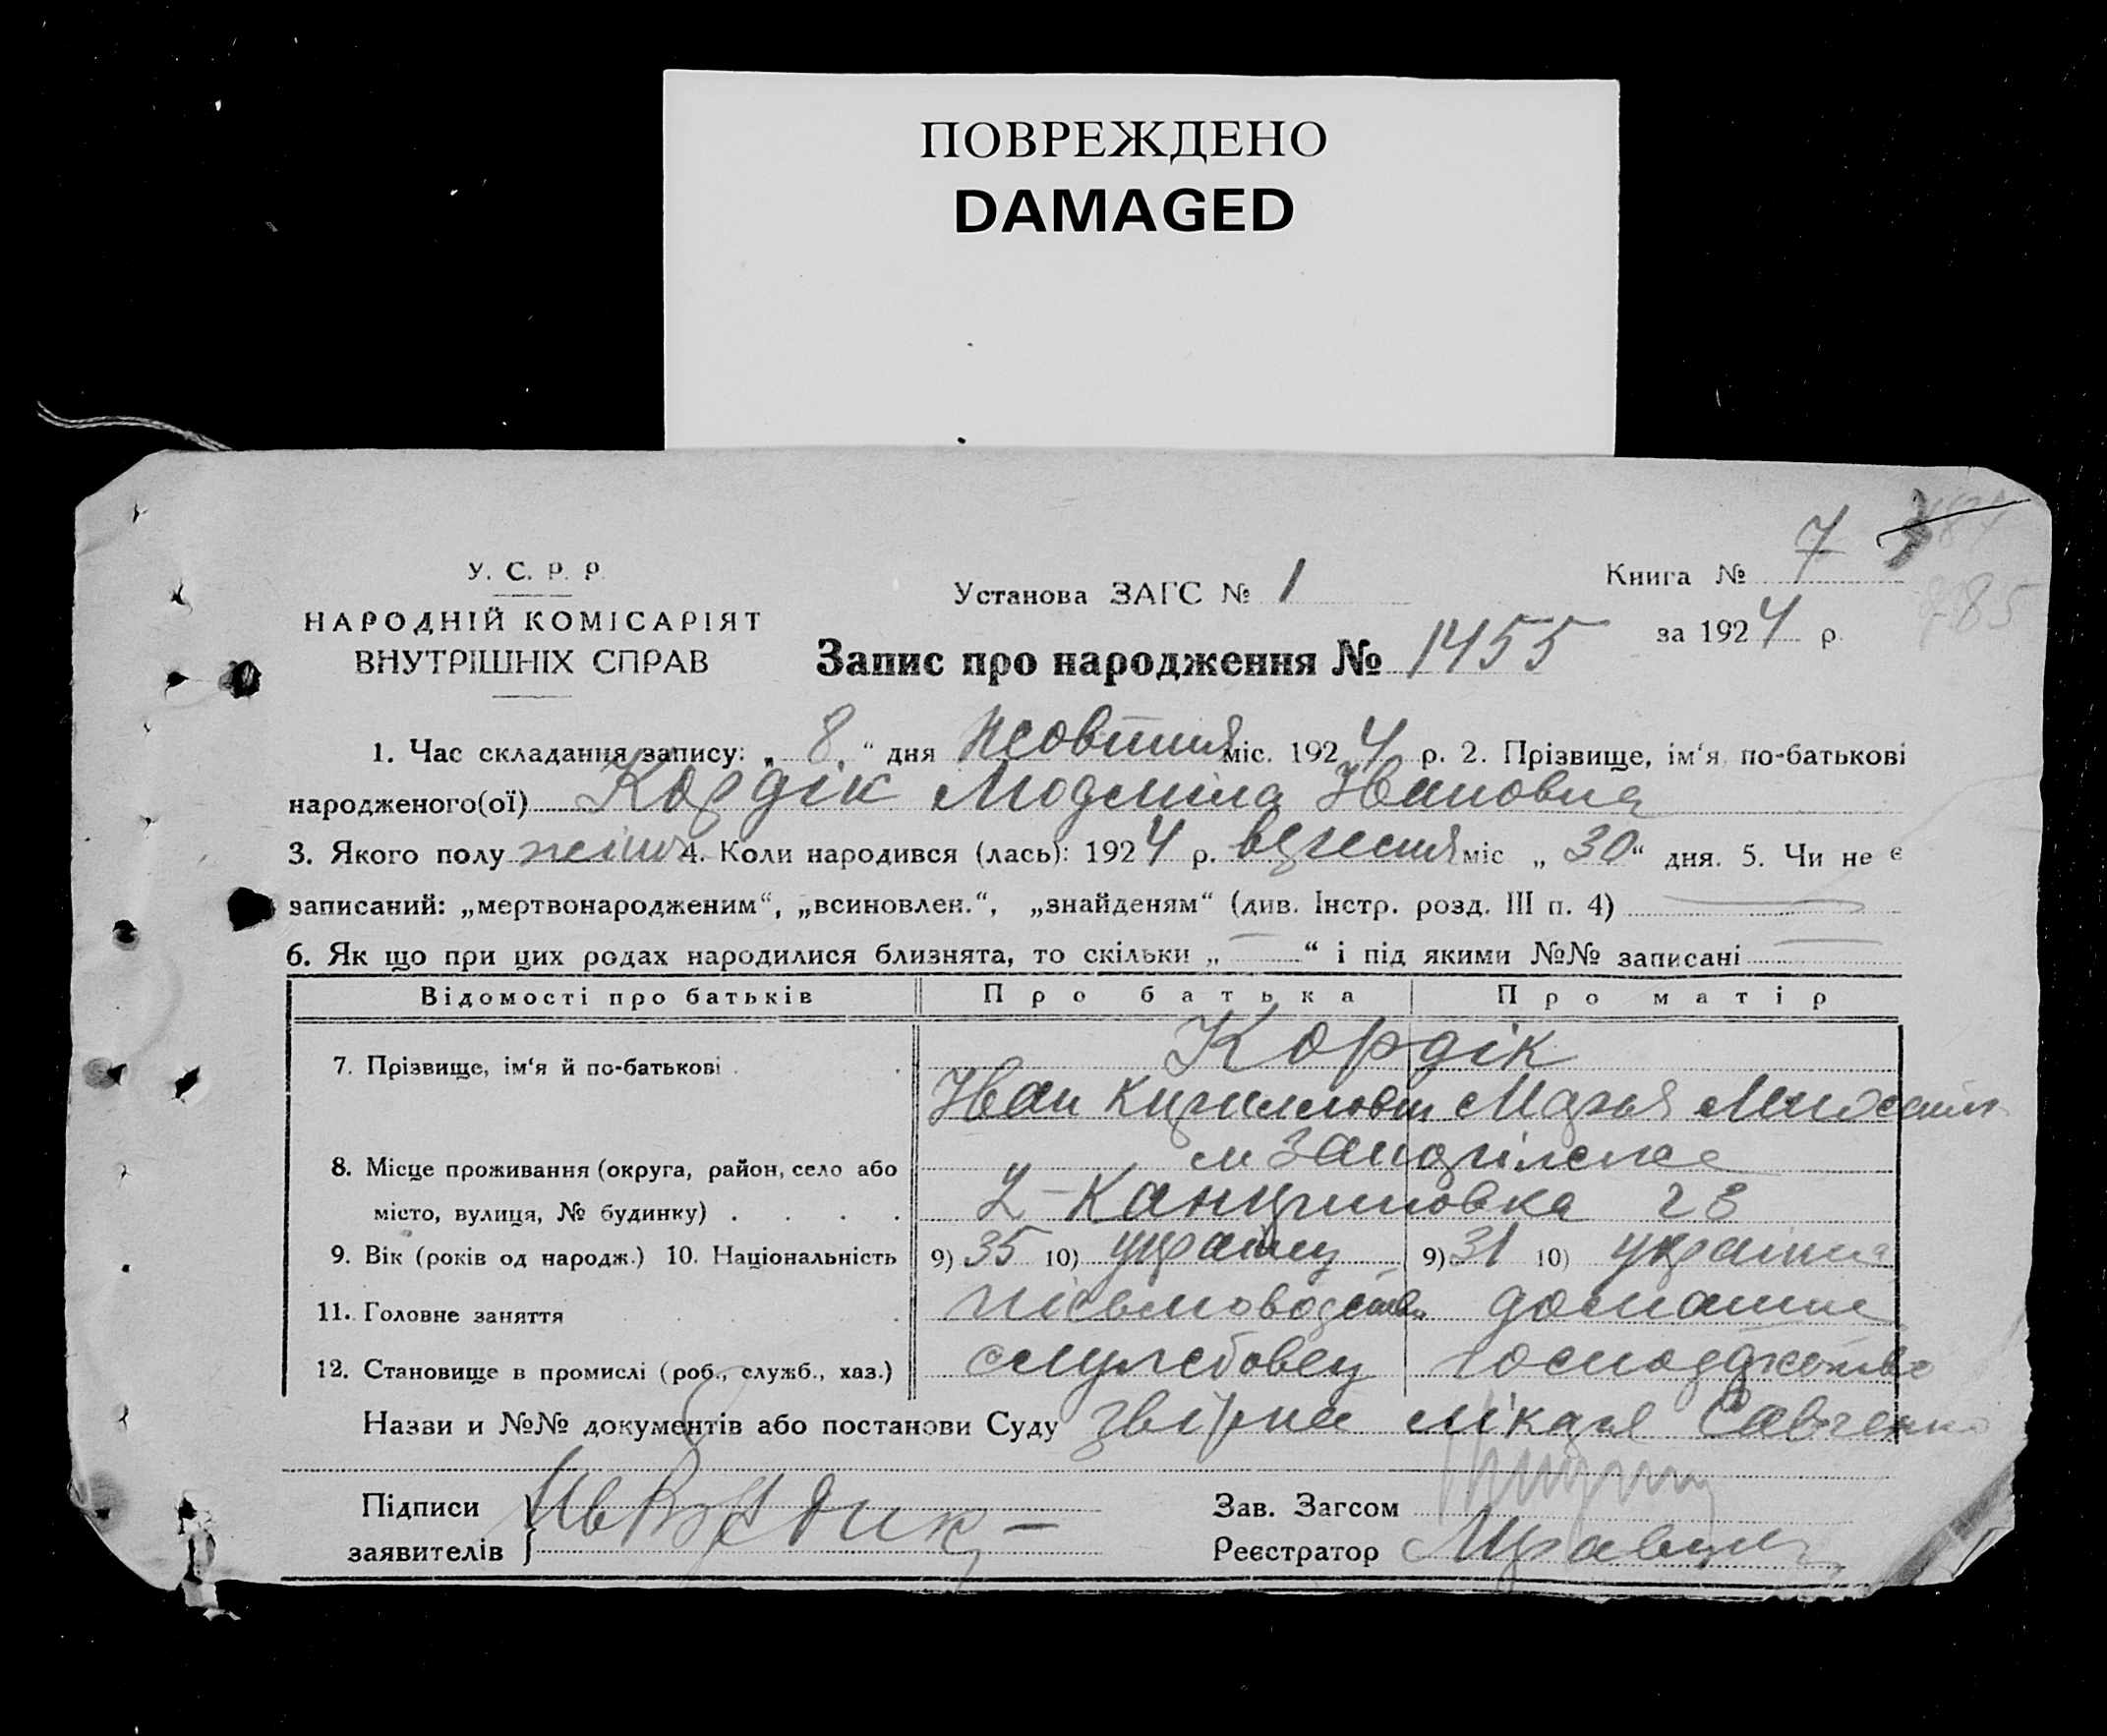 ПОВРЕЖДЕНО
DAMAGED
Книга № 7
У. С. Р. Р.
Установа ЗАГС № 1
785
НАРОДНІЙ КОМІСАРІЯТ
за 1924 р.
ВНУТРІШНІХ СПРАВ
Запис про народження № 1455
1. Час складання запису: „ 8 “ дня Жовтня міс. 1924 р. 2. Прізвище, ім‘я по-батькові
народженого(ої) Кордік Людміла Івановна
3. Якого полу жіноч 4. Коли народився (лась): 1924 р. вересня міс „ 30 “ дня. 5. Чи не є
записаний: „мертвонародженим“, „всиновлен.“, „знайденям“ (див. Інстр. розд. III п. 4)
6. Як що при цих родах народилися близнята, то скільки „ — “ і під якими №№ записані —
Відомості про батьків Про батька Про матір
7. Прізвище, ім‘я й по-батькові Кордік
Іван Кирилович Марья Михайл
8. Місце проживання (округа, район, село або
місто, вулиця, № будинку) 28
9. Вік (років од народж.) 10. Національність 9) 35 10) українц 9) 31 10) українка
11. Головне заняття домашне
12. Становище в промислі (роб., служб., хаз.) службовец господарство
Назви и №№ документів або постанови Суду лікаря Савченко
Підписи
заявителів
Зав. Загсом
Реєстратор